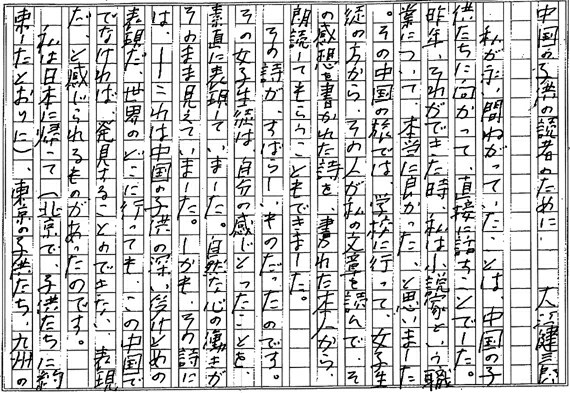 中国の子供の読者のために　大江健三郎
私が永い間ねがっていたことは、中国の子
供たちに向かって、直接に話すことでした。
昨年、それができた時、私は小説家という職
業について、本当に良かった、と思いました
。その中国の旅では、学校に行って、女子生
徒の方から、その人が私の文章を読んで、そ
の感想を書かれた詩を、書かれた本人から、
朗読してもらうこともできました。
その詩が、すばらしいものだったのです。
その女子生徒は、自分の感じとったことを、
素直に表現していました。自然な心の働きが
そのまま見えていました。しかも、その詩に
は、――これは中国の子供の深い受けとめの
表現だ、世界のどこに行っても、この中国で
でなければ、発見することのできない、表現
だ、と感じられるものがあったのです。
私は日本に帰って（北京で、子供たちに約
束したとおりに）、東京の子供たち、九州の